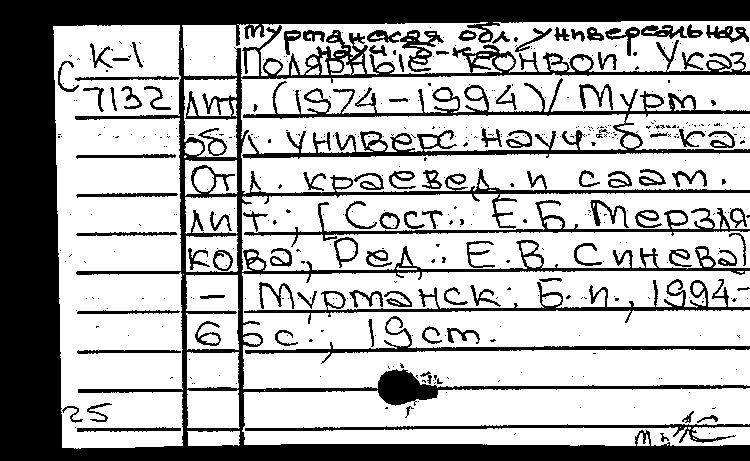 Мурманская обл. универсальная
науч. б-ка
К-1
Полярные конвои: Указ.
С 7132 лит. (1974-1994)/ Мурм.
обл. универс. науч. б-ка.
Отд. краевед. и саам.
лит.; [Сост.: Е.Б. Мерзля-
кова; Ред.: Е.В. Синева]
- Мурманск: Б. и., 1994.-
66 с.; 19 cm.
25